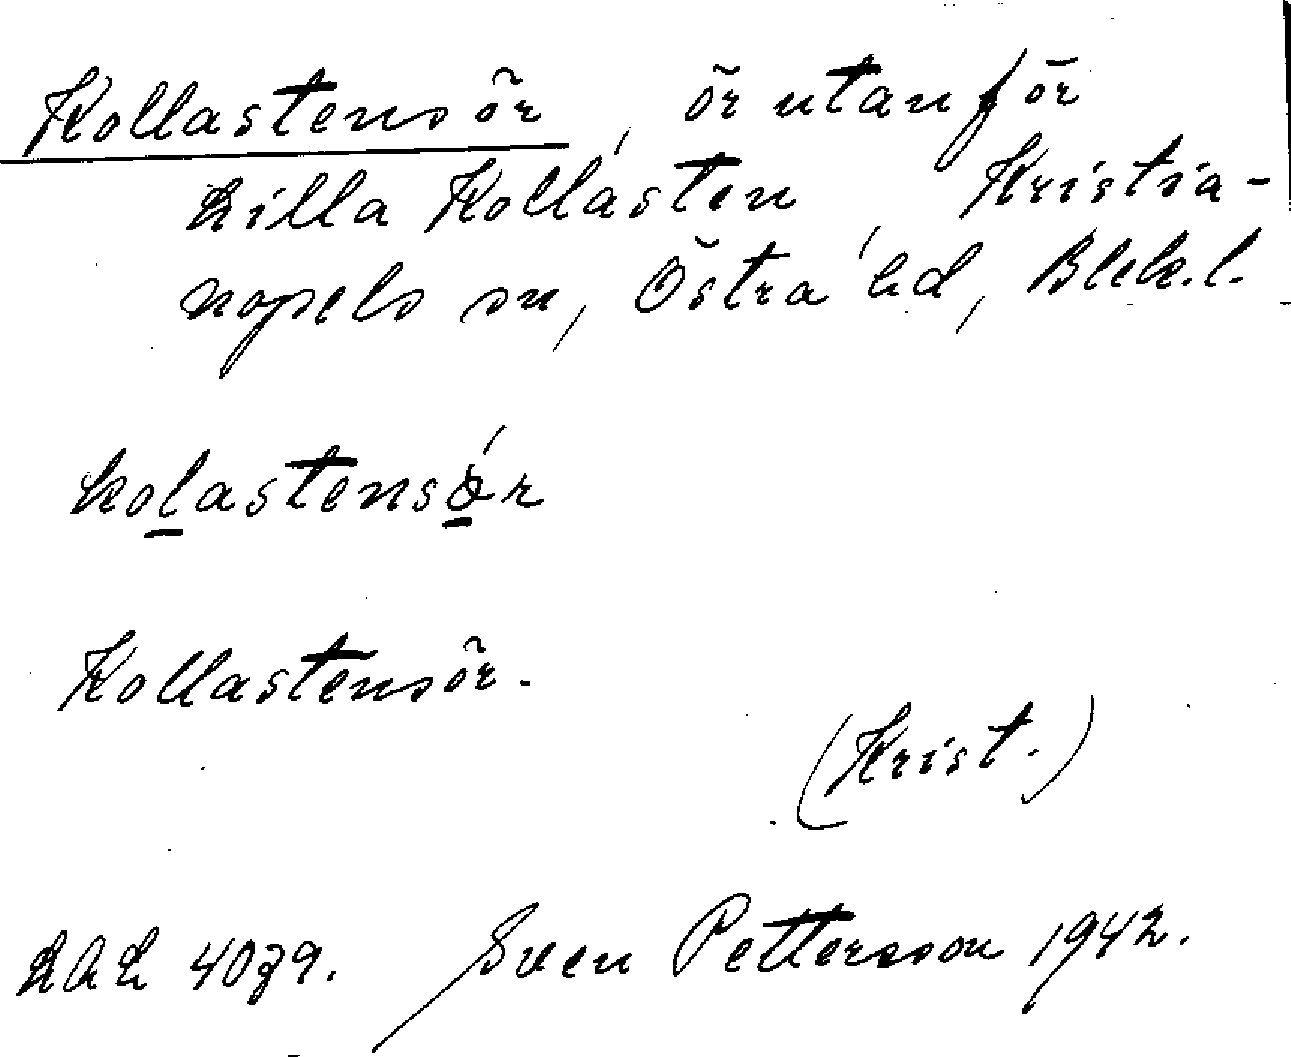 Kollastensör, ör utanför
Lilla Kollasten, Kristia-
nopels sn, Östra hd, Blek. l.
kolastensör
Kollastensör.
(Krist.)
LAL 4079. Sven Pettersson 1942.